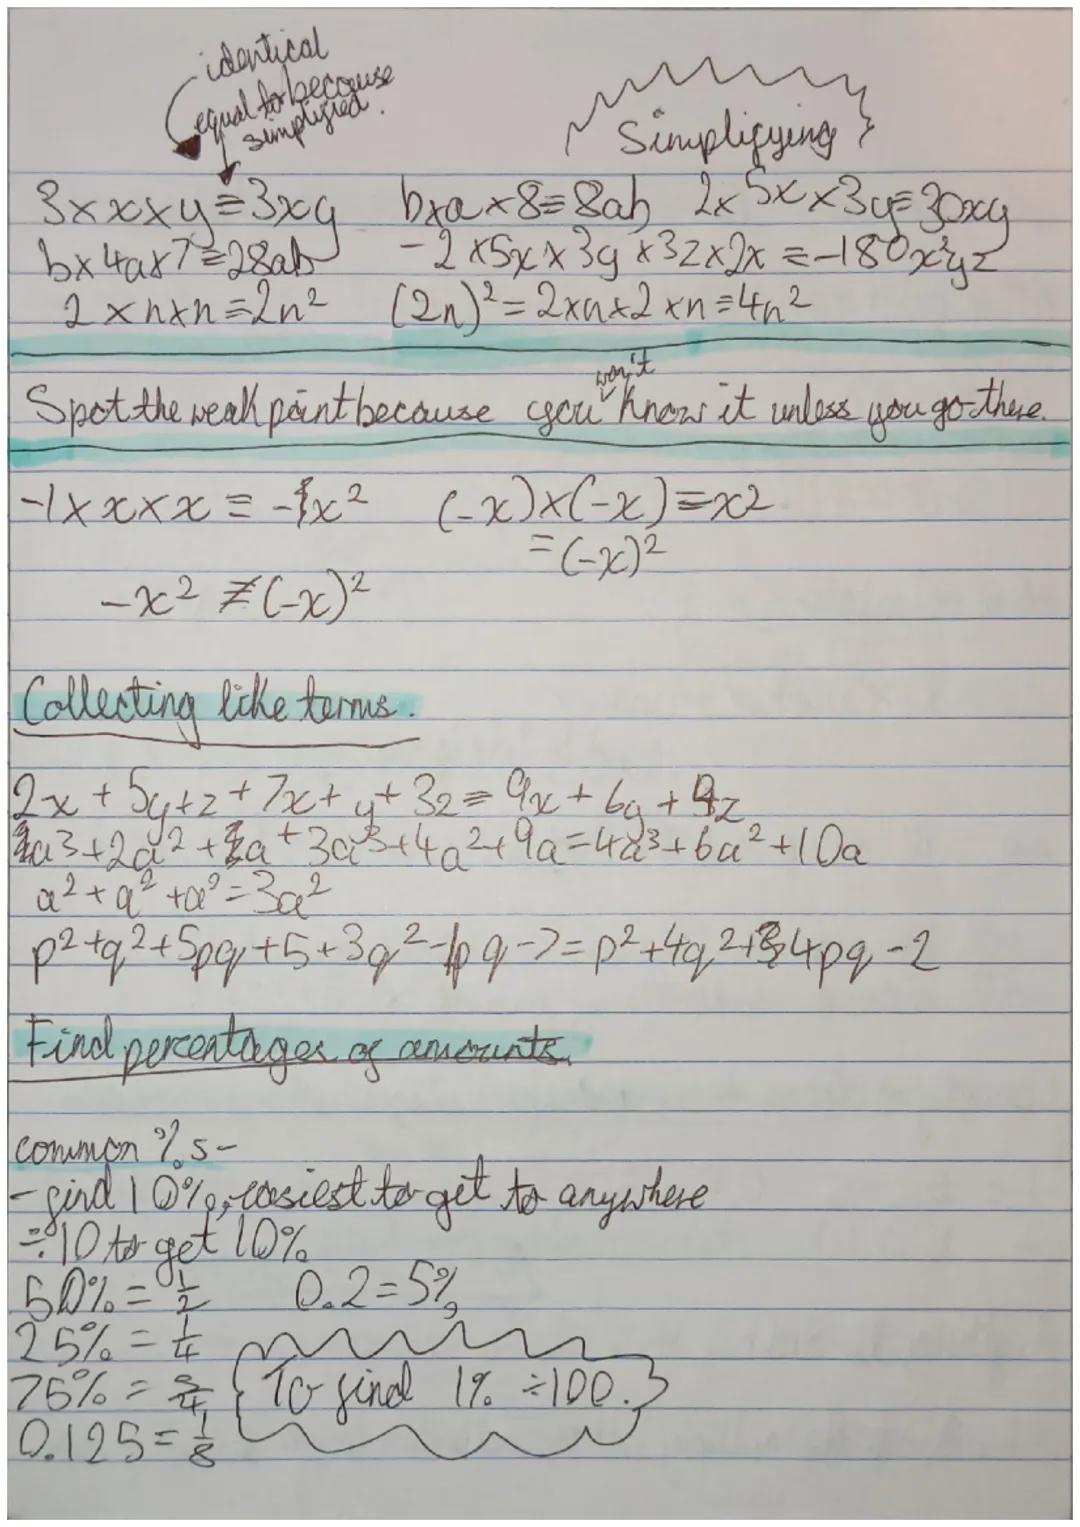 identical
equal to because
simplified.
Simplifying
3×x×y≡3xy b×a×8≡8ab 2×5x×3y≡30xy
b×4a×7≡28ab -2×5x×3y×3z×2x≡-180x²yz
2×n×n≡2n² (2n)²=2×n×2×n≡4n²
Spot the weak point because you won't know it unless you go there.
-1×x×x≡-1x² (-x)×(-x)≡x2
=(-x)²
-x²≢(-x)²
Collecting like terms.
2x+5y+z+7x+y+3z≡9x+6y+4z
1a3+2a²+1a+3a³+4a²+9a=4a³+6a²+10a
a²+a²+a²=3a²
p²+q²+5pq+5+3q²-1pq-7=p²+4q²+4pq-2
Find percentages of amounts.
common %s-
-find 10%, easiest to get to anywhere
÷10 to get 10%
50%=1/2 0.2=5%
25%=1/4
75%=3/4 To find 1% ÷100.
0.125=1/8